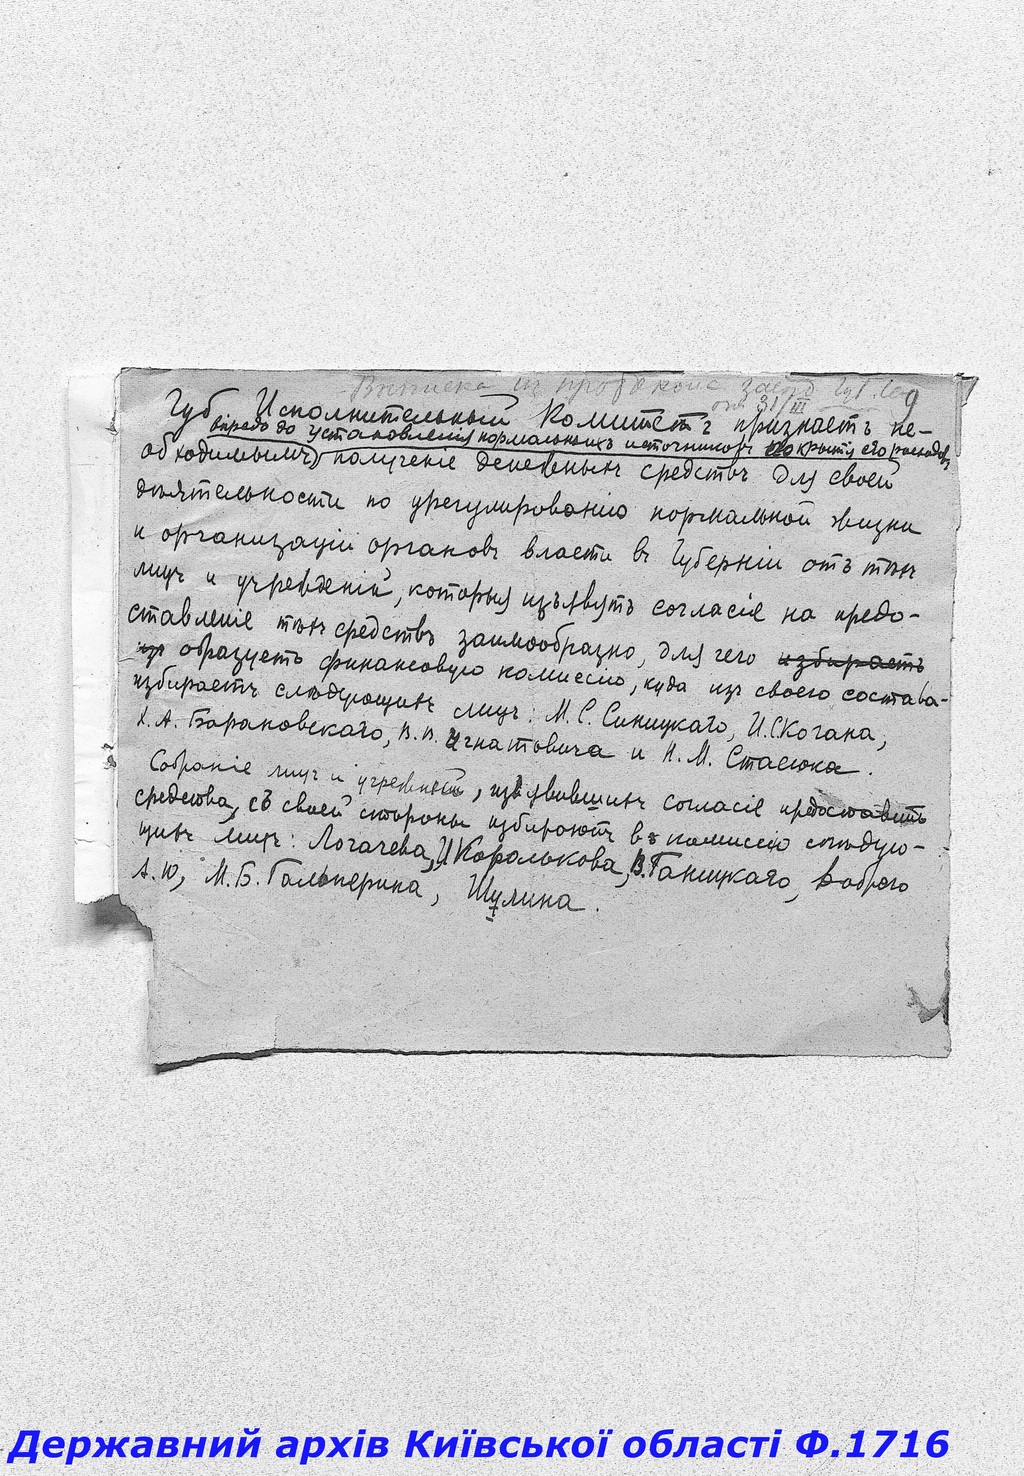 Выписка из протокола засед. Губ.
от 31/III
Губ Исполнительный Комитетъ признаетъ не-
впредь до установленія нормальныхъ источниковъ покрытія его расходовъ
обходимымъ получение денежныхъ средствъ для своей
дѣятельности по урегулированію нормальной жизни
и организаціи органовъ власти въ Губерніи отъ тѣхъ
лицъ и учрежденій, которыя изъявятъ согласіе на предо-
ставленіе тѣхъ средствъ заимообразно, для чего избираетъ
из образуетъ финансовую комиссію, куда изъ своего состава-
избираетъ слѣдующихъ лицъ: М. С. Синицкаго, И.С.Когана,
Х. А. Барановскаго, В. В. Игнатовича и Н. М. Стасюка.
Собраніе лицъ и учрежденій, изъявившихъ согласіе предоставить
средства, съ своей стороны избираютъ въ комиссію слѣдую-
щихъ лицъ: Логачева, И Королькова, В. Ганицкаго, Доброго
А. Ю, М. Б. Гальперина, Шулина.
Державний архів Київської області Ф.1716